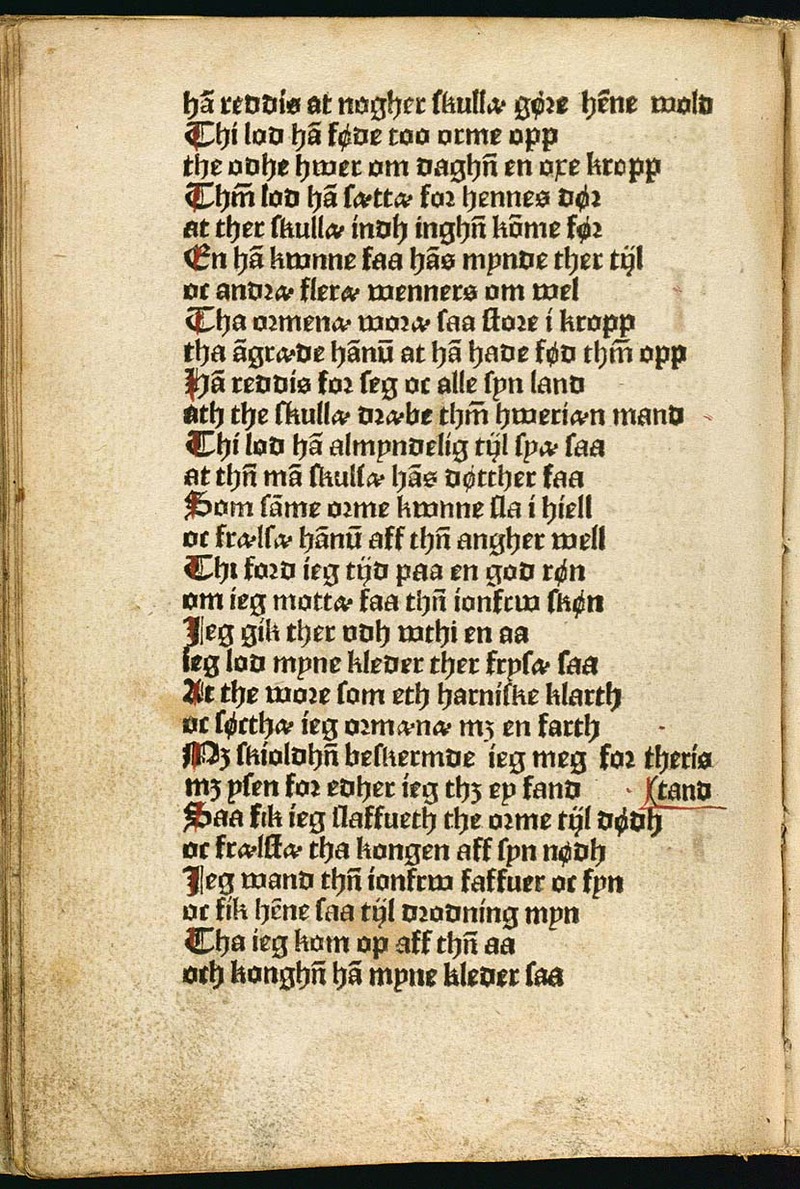 hā reddis at nogher skullæ gøre hēne wold
Thi lod hā føde too orme opp
the odhe hwer om daghn̄ en oxe kropp
Thm̄ lod hā sættæ for hennes dør
at ther skullæ indh inghn̄ kōme før
En hā kwnne faa hās mynde ther tijl
oc andræ fleræ wenners om wel
Tha ormenæ woræ saa store i kropp
tha āgræde hānū at hā hade fød thm̄ opp
Hā reddis for seg oc alle syn land
ath the skullæ dræbe thm̄ hweriæn mand
Thi lod hā almyndelig tijl syæ saa
at thn̄ mā skullæ hās døtther faa
Som sāme orme kwnne sla i hiell
oc frælsæ hānū aff thn̄ angher well
Thi ford ieg tijd paa en god røn
om ieg mottæ faa thn̄ ionfrw skøn
Jeg gik ther vdh wthi en aa
ieg lod myne kleder ther frysæ saa
At the wore som eth harniske klarth
oc søcthæ ieg ormænæ mꝫ en farth
Mꝫ skioldhn̄ beskermde ieg meg for theris
mꝫ ysen for edher ieg thꝫ ey fand (tand
Saa fik ieg slaffueth the orme tijl dødh
oc frælstæ tha kongen aff syn nødh
Jeg wand thn̄ ionfrw faffuer oc fyn
oc fik hēne saa tijl drodning myn
Tha ieg kom op aff thn̄ aa
och konghn̄ hā myne kleder saa